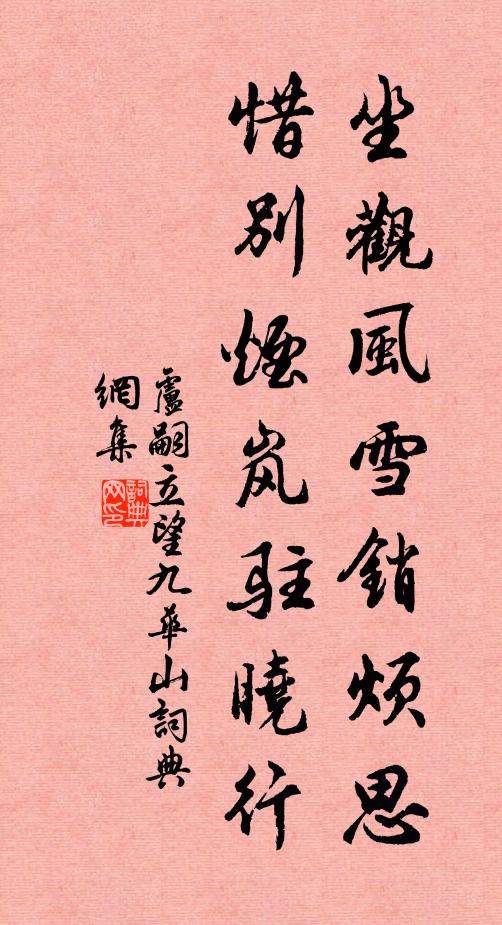 坐觀風雪銷煩思
惜別煙岚駐曉行
盧嗣立望九華山詞典
網集
詞典
网印